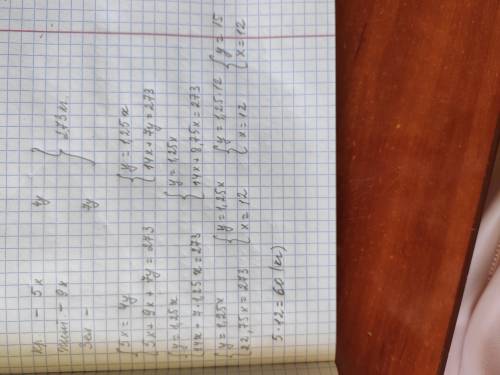 Кр. - 5x 4y
- 9x } 273 кг.
Зел - 7y
{ 5x = 4y
5x + 9x + 7y = 273
{ y = 1,25x
14x + 7y = 273
{ y = 1,25x
14x + 7·1,25x = 273
{ y = 1,25x
14x + 8,75x = 273
{ y = 1,25x
22,75x = 273
{ y = 1,25x
x = 12
{ y = 1,25·12
x = 12
{ y = 15
x = 12
5·12 = 60 (кг)